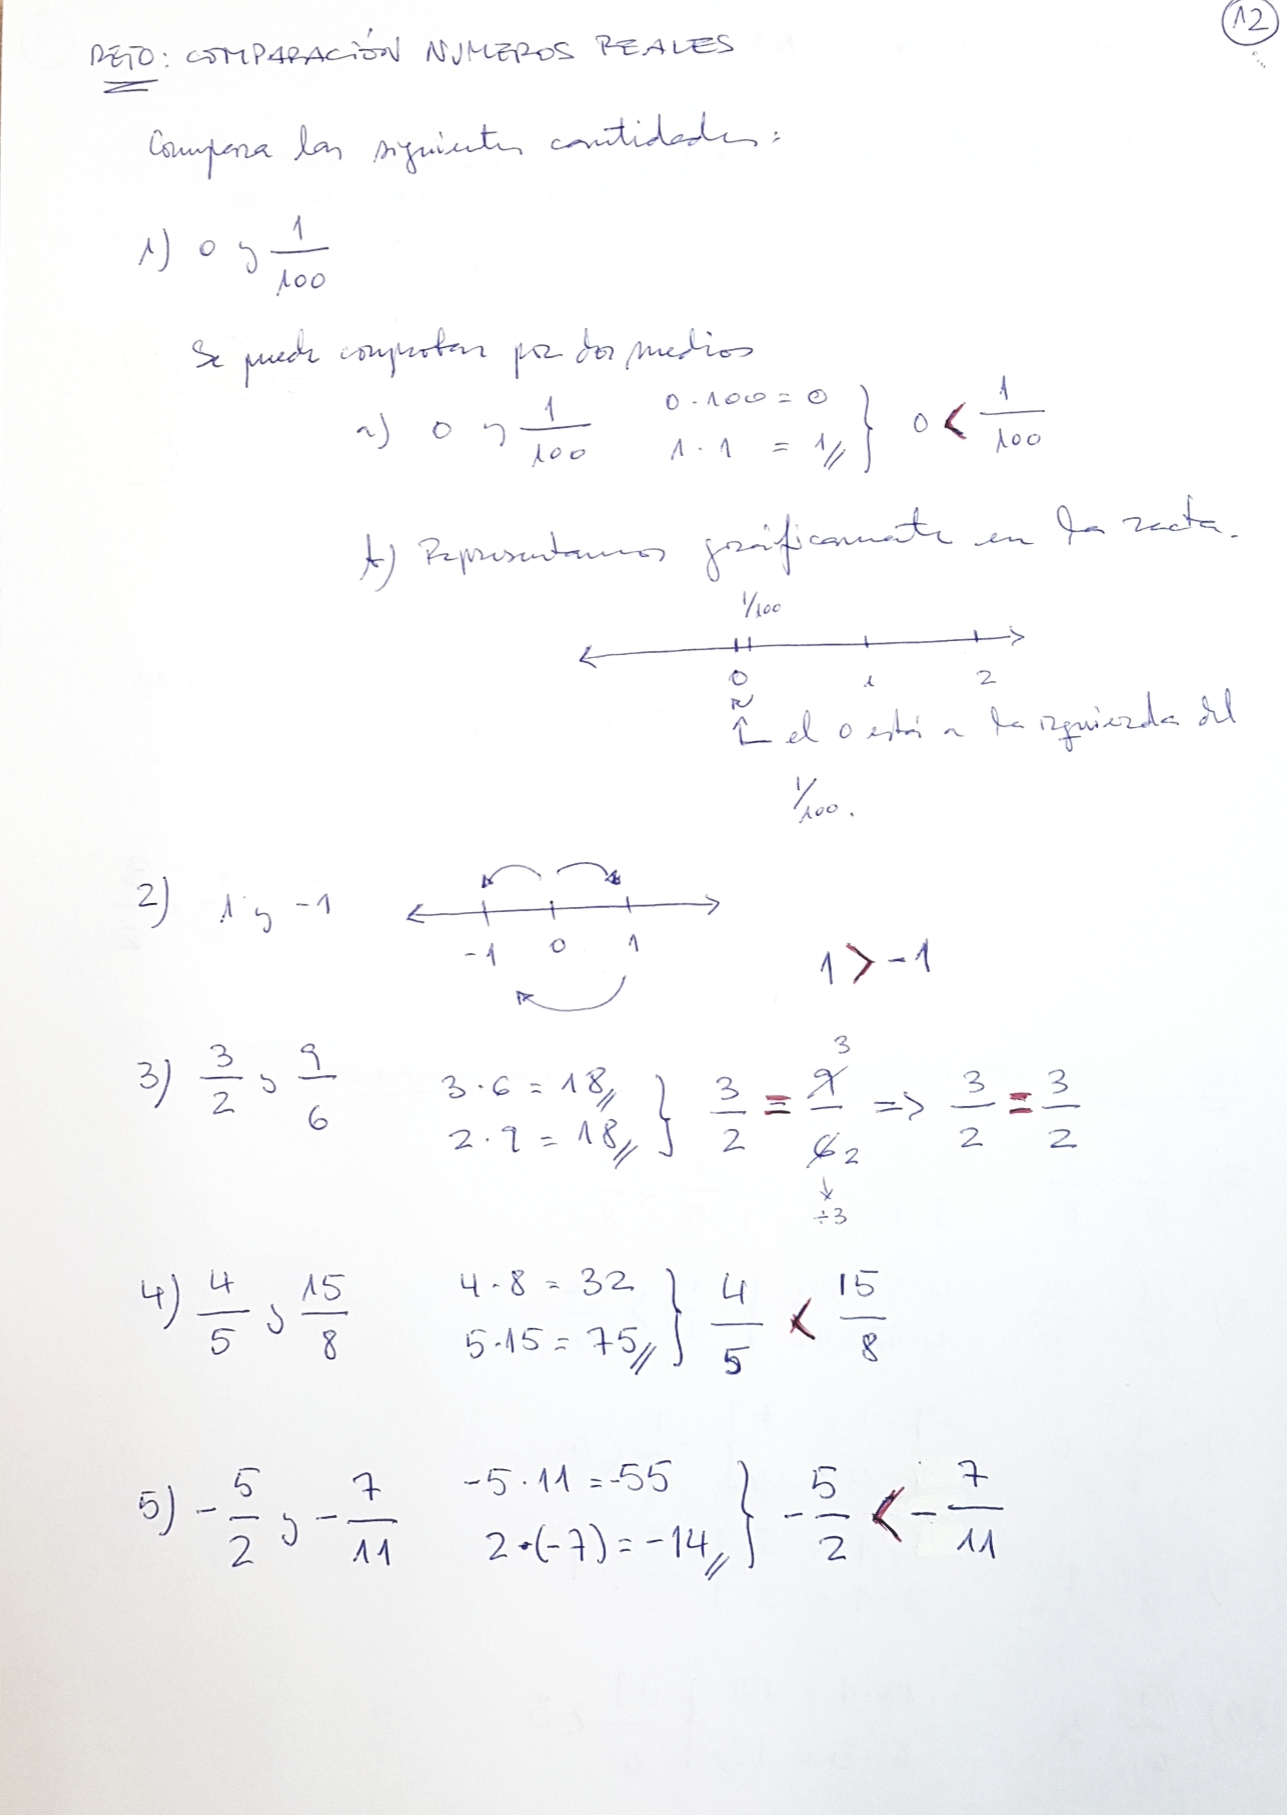 12
RETO: COMPARACIÓN NUMEROS REALES
Compara las siguientes cantidades:
1) 0 y 1/100
Se puede comprobar por dos medios
a) 0 y 1/100 0·100 = 0 } 0 < 1/100
1·1 = 1
b) Representamos gráficamente en la recta.
1/100
0 1 2
el 0 está a la izquierda del
1/100.
2) 1 y -1
-1 0 1
1 > -1
3) 3/2 y 9/6 3·6 = 18 } 3/2 = 9/6 3 2 => 3/2 = 3/2
2·9 = 18
÷3
4) 4/5 y 15/8 4·8 = 32 } 4/5 < 15/8
5·15 = 75
5) -5/2 y -7/11 -5·11 = -55 } -5/2 < -7/11
2·(-7) = -14